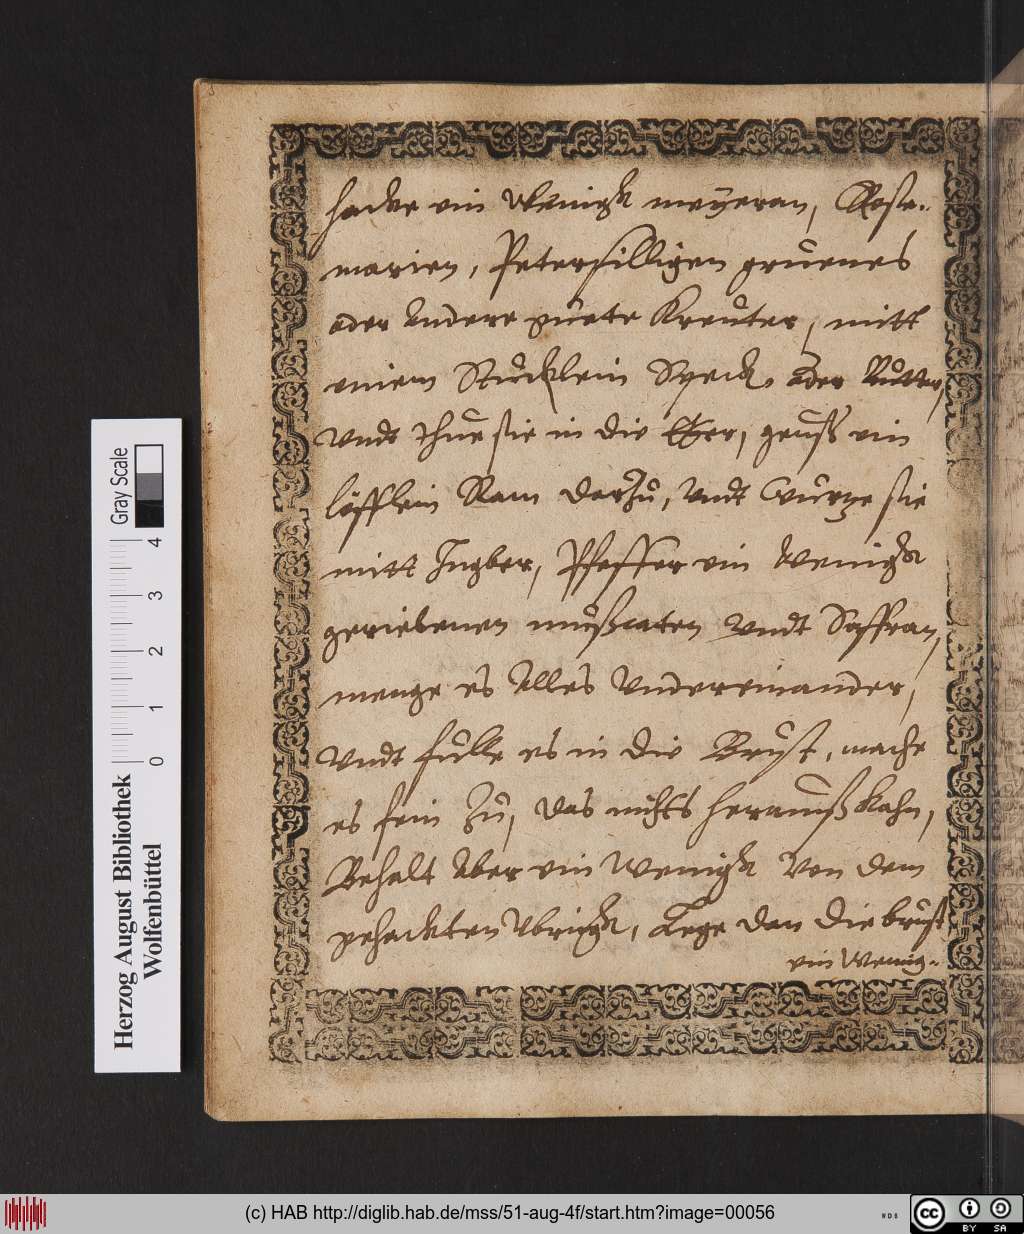 hacke ein Wenigk meyeran, Rosa-
marien, Petersilligen gruenes
oder Andere guete Kreuter, mitt
einem Stucklein Speck. oder Butter,
Vndt thue sie in die Eÿer, geuß ein
löfflein Ram darzu, Vndt Wurtze sie
mitt Ingber, Pfeffer ein Wenigk
geriebenen mußcaten Vndt Saffran,
menge es Alles Vndereinander,
Vndt fulle es in die Brust, mache
es fein Zu, das nichts herauß kahn,
Behalt Aber ein Wenigk Von dem
gehackten Vbrigk, Lege dan die brust
ein Wenig-
Herzog August Bibliothek
Wolfenbüttel
Gray Scale
0 1 2 3 4
(c) HAB http://diglib.hab.de/mss/51-aug-4f/start.htm?image=00056
WDB
cc
BY SA